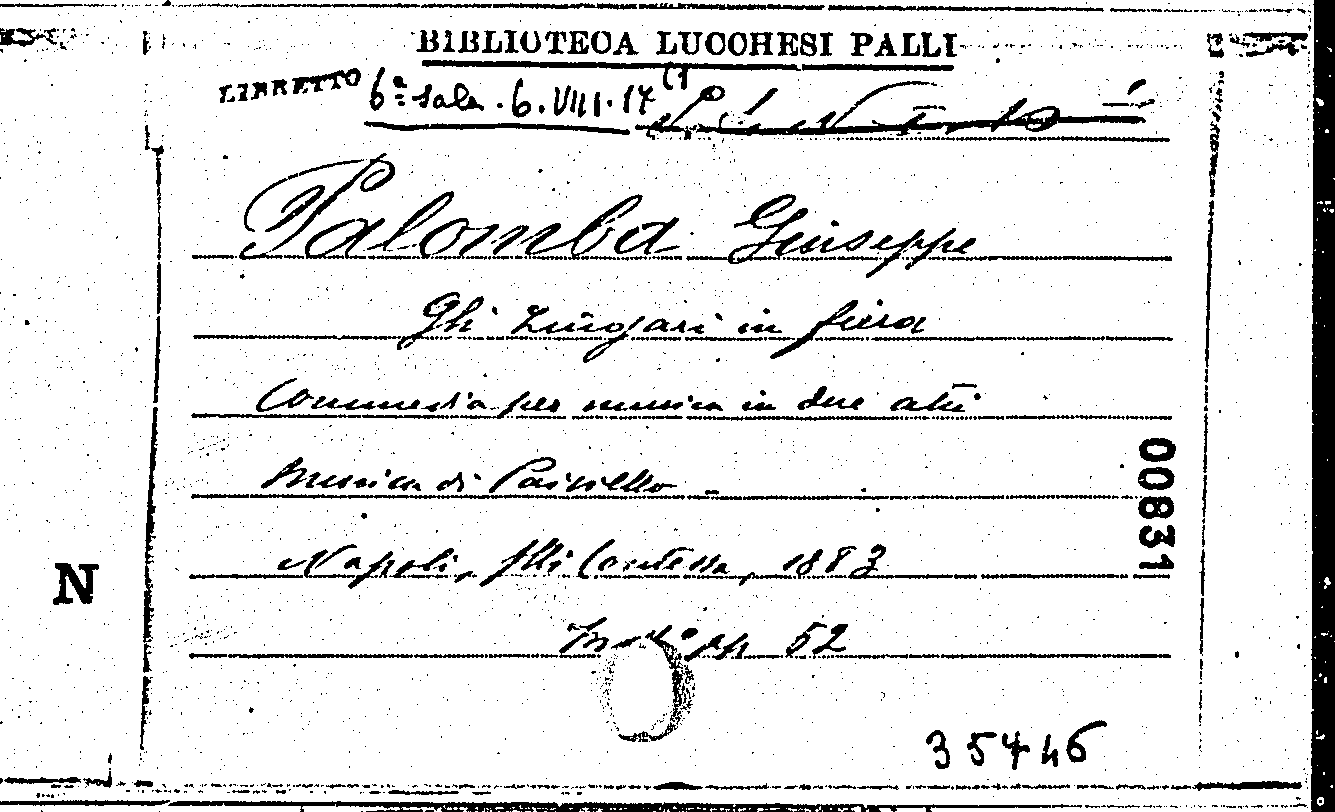 BIBLIOTECA LUCCHESI PALLI
LIBRETTO 6ª Sala. 6. VIII. 17 (1
Palomba Giuseppe
Gli Zingari in fiera
Commedia per musica in due atti
Musica di Paisiello -
Napoli, f.lli Contessa, 1883
In pp 52
00831
N
35446